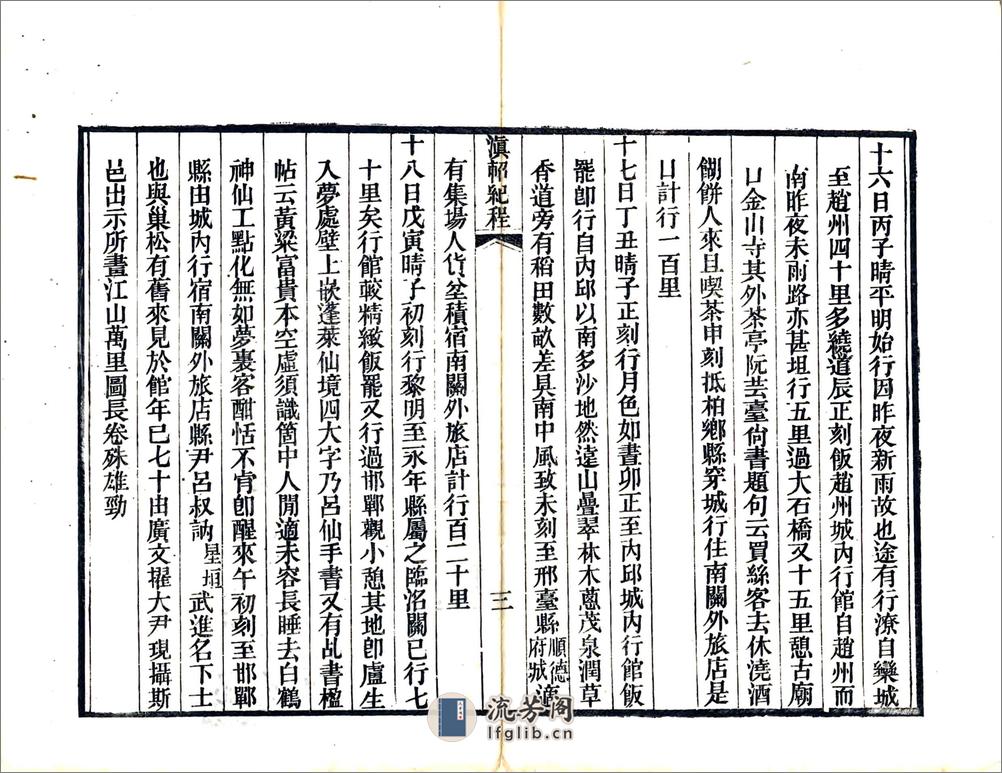 十六日丙子晴平明始行因昨夜新雨故也途有行潦自欒城
至趙州四十里多繞道辰正刻飯趙州城內行館自趙州而
南昨夜未雨路亦甚坦行五里過大石橋又十五里憩古廟
曰金山寺其外茶亭阮芸臺尙書題句云買絲客去休澆酒
餬餅人來且喫茶申刻抵柏鄉縣穿城行住南關外旅店是
日計行一百里
十七日丁丑晴子正刻行月色如晝卯正至內邱城內行館飯
罷卽行自內邱以南多沙地然遠山疊翠林木蔥茂泉潤草
香道旁有稻田數畝差具南中風致未刻至邢臺縣順德府城適
滇軺紀程
三
有集場人貨坌積宿南關外旅店計行百二十里
十八日戊寅晴子初刻行黎明至永年縣屬之臨洺關已行七
十里矣行館較精緻飯罷又行過邯鄲觀小憩其地卽盧生
入夢處壁上嵌蓬萊仙境四大字乃呂仙手書又有乩書楹
帖云黃粱富貴本空虛須識箇中人閒適未容長睡去白鶴
神仙工點化無如夢裏客酣恬不肯卽醒來午初刻至邯鄲
縣由城內行宿南關外旅店縣尹呂叔訥星垣武進名下士
也與巢松有舊來見於館年已七十由廣文擢大尹現攝斯
邑出示所畫江山萬里圖長卷殊雄勁
流芳阁
lfglib.cn